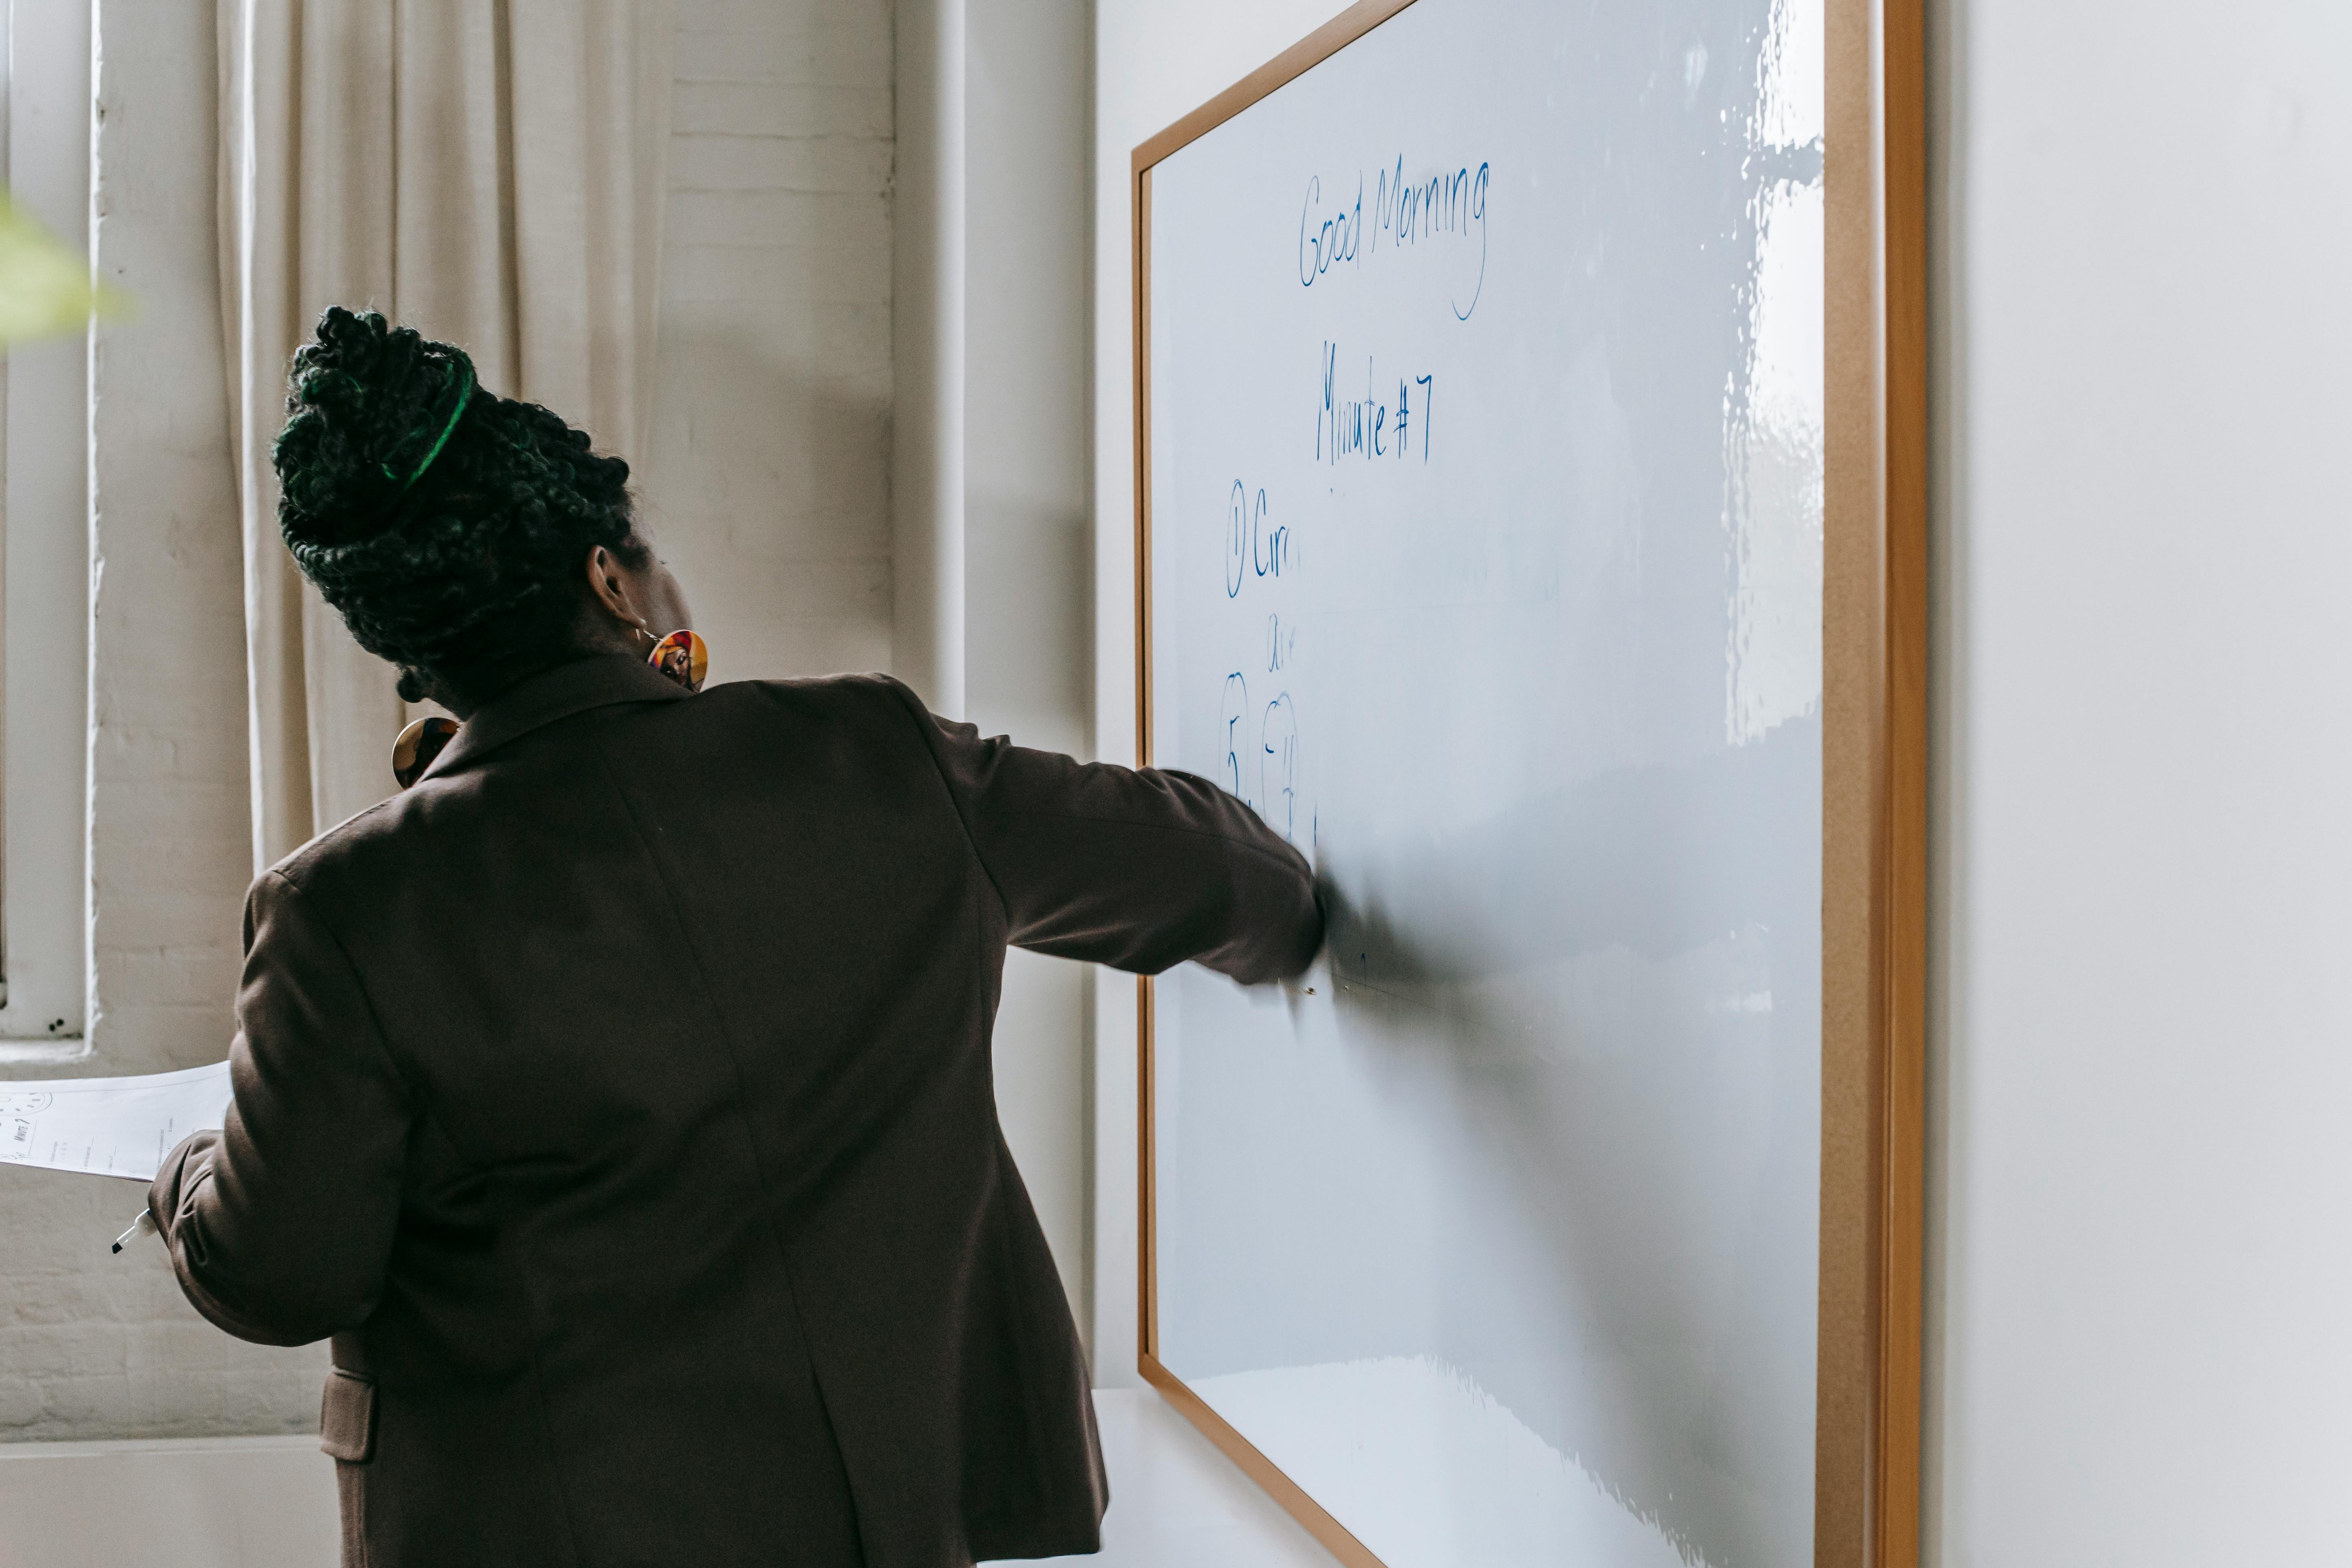 Good Morning
Minute #7
① Circ
are
5, -7
MINUTE 7